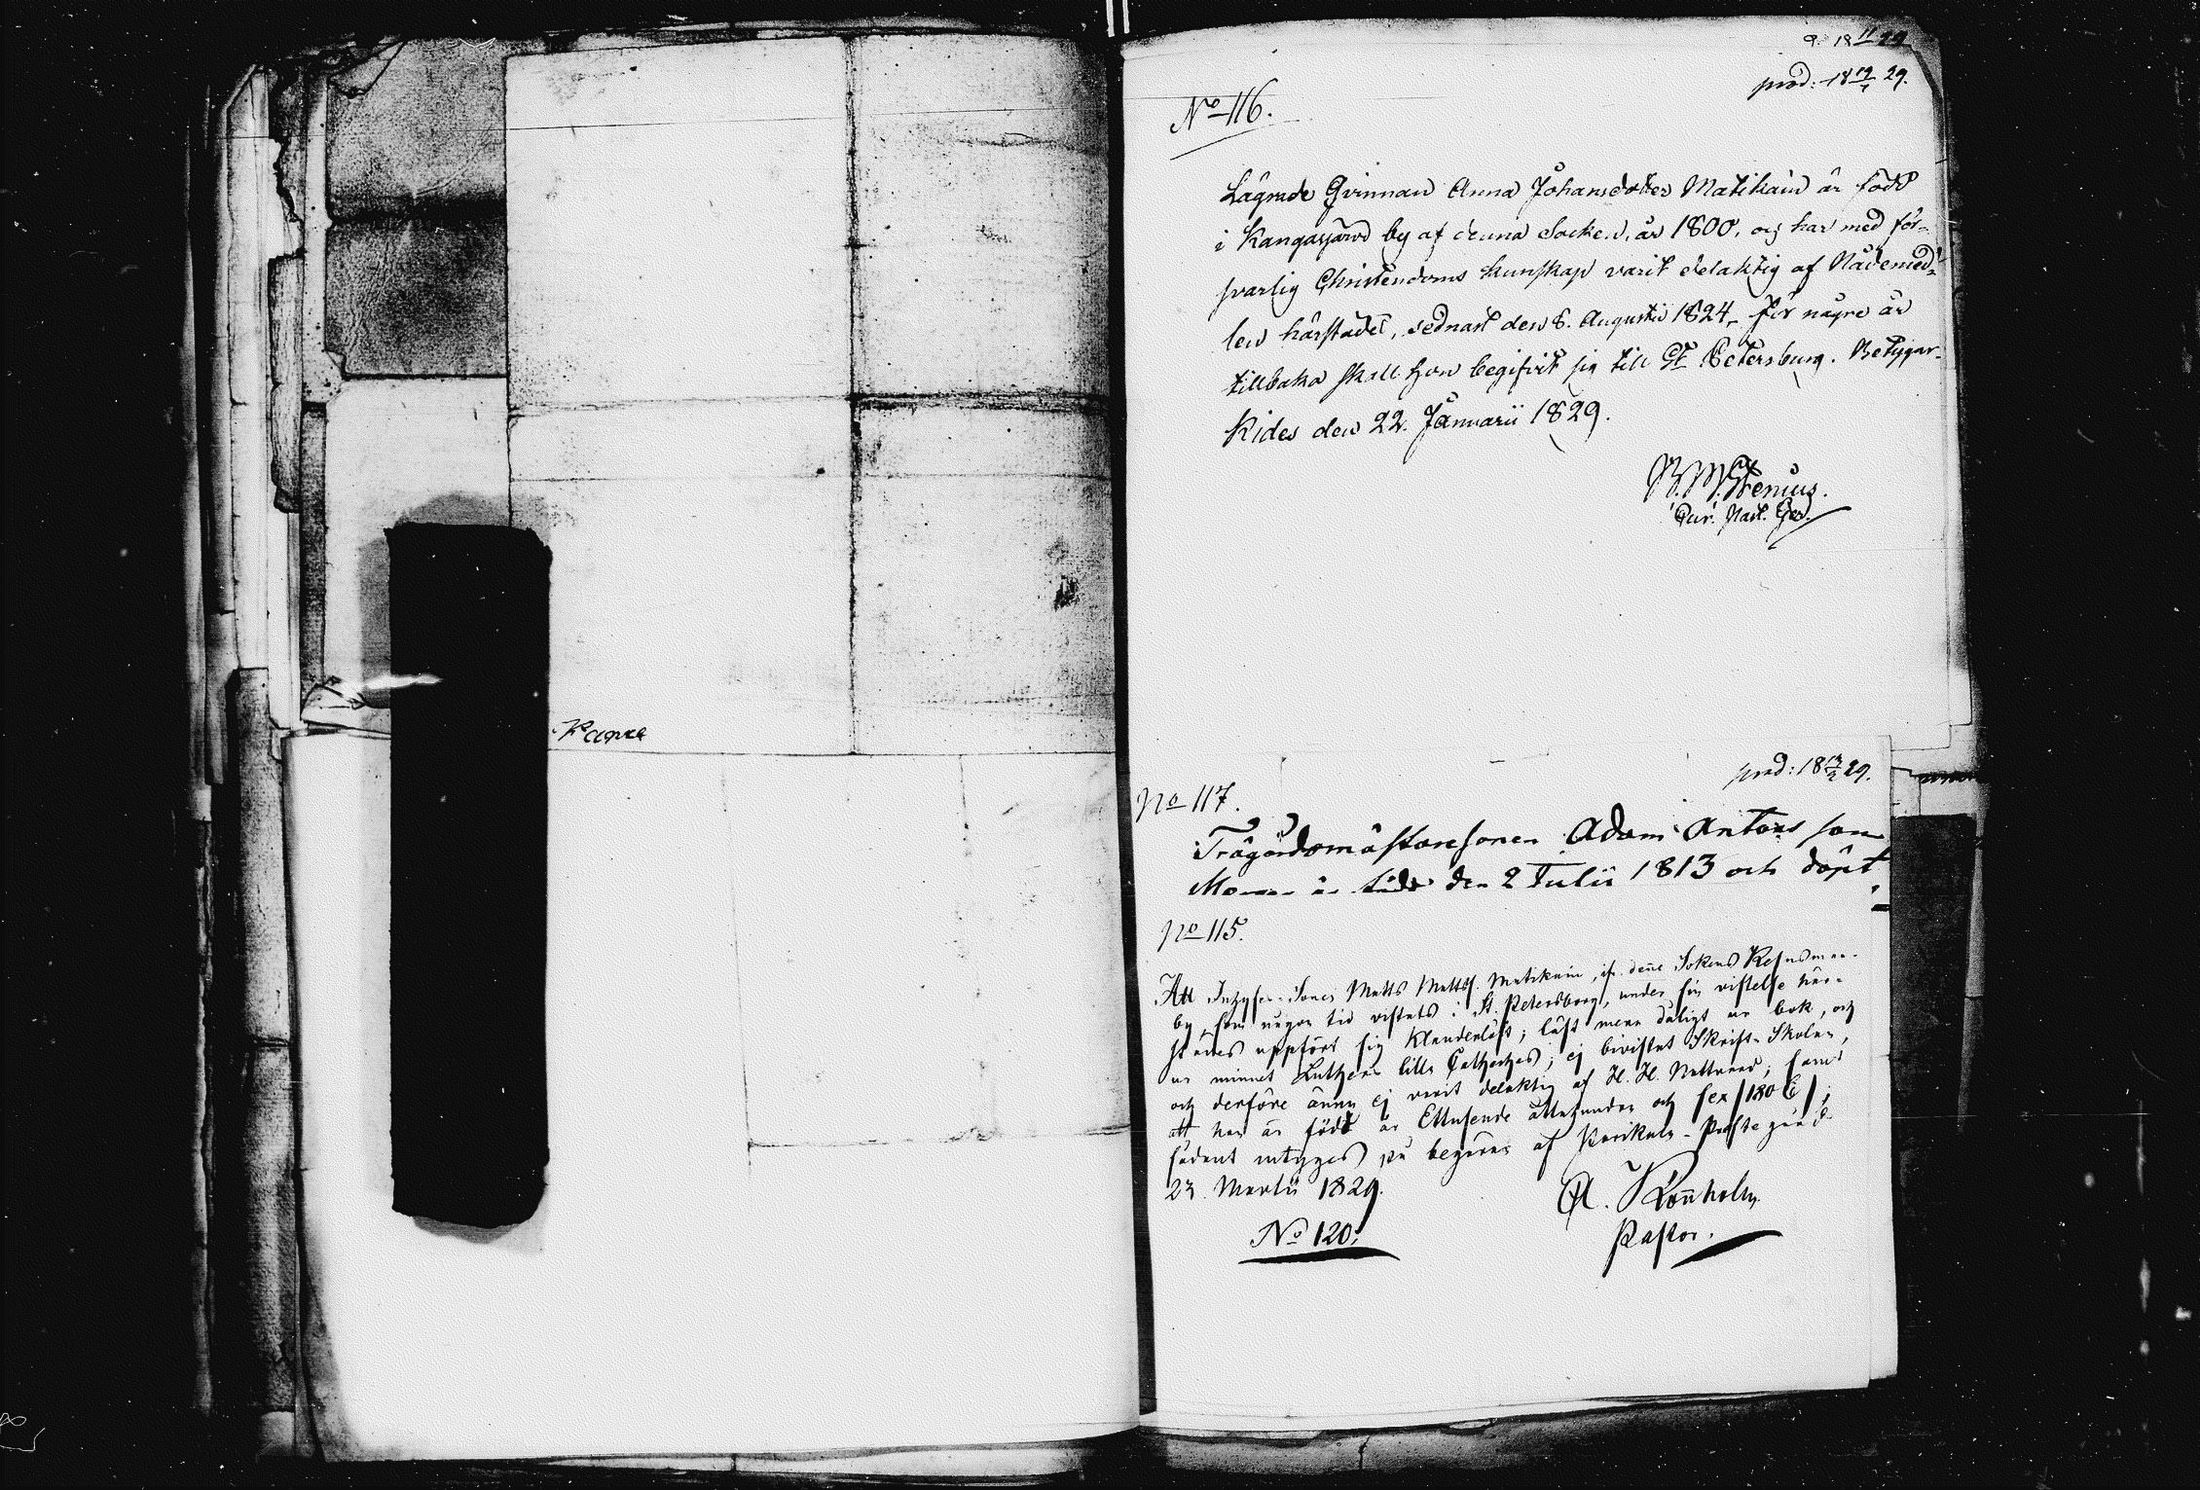 18 11/ 29
prod: 18 19/ 29.
No 116.
Lägrade Qvinnan Anna Johansdotter Matikain är född
i Kangasjärvi by af denna Socken, år 1800, och har med för-
svarlig Christendoms kunskap varit delaktig af Nådemed-
len härstädes, sednast den 8. Augustii 1824. För några år
tillbaka skall hon begifvit sig till St Petersburg. Betygar.
Kides den 22. Januarii 1829.
Stenius.
Past.
prod: 18 29.
No 117.
Trägårdsmästaresonen Adam Antons son
är född den 2 Julii 1813 och döpt
No 115.
Att Matts Matts. Matikain, denne Sokens
by, som någon tid vistats i St. Petersburg, under sin vistelse här-
städes uppfört sig klanderlöst; läst dåligt ur bok, och
ur minnet Lutheri lilla Catheches; ej bivistat Skrift-Skolan,
och derföre ännu ej varit delaktig af H. H. Nattvard; samt
att han är född år Ettusende åttahundra och sex /1806/;
sådant på begäran af Prästegård
23 Martii 1829.
Rönnholm
Pastor.
No 120.